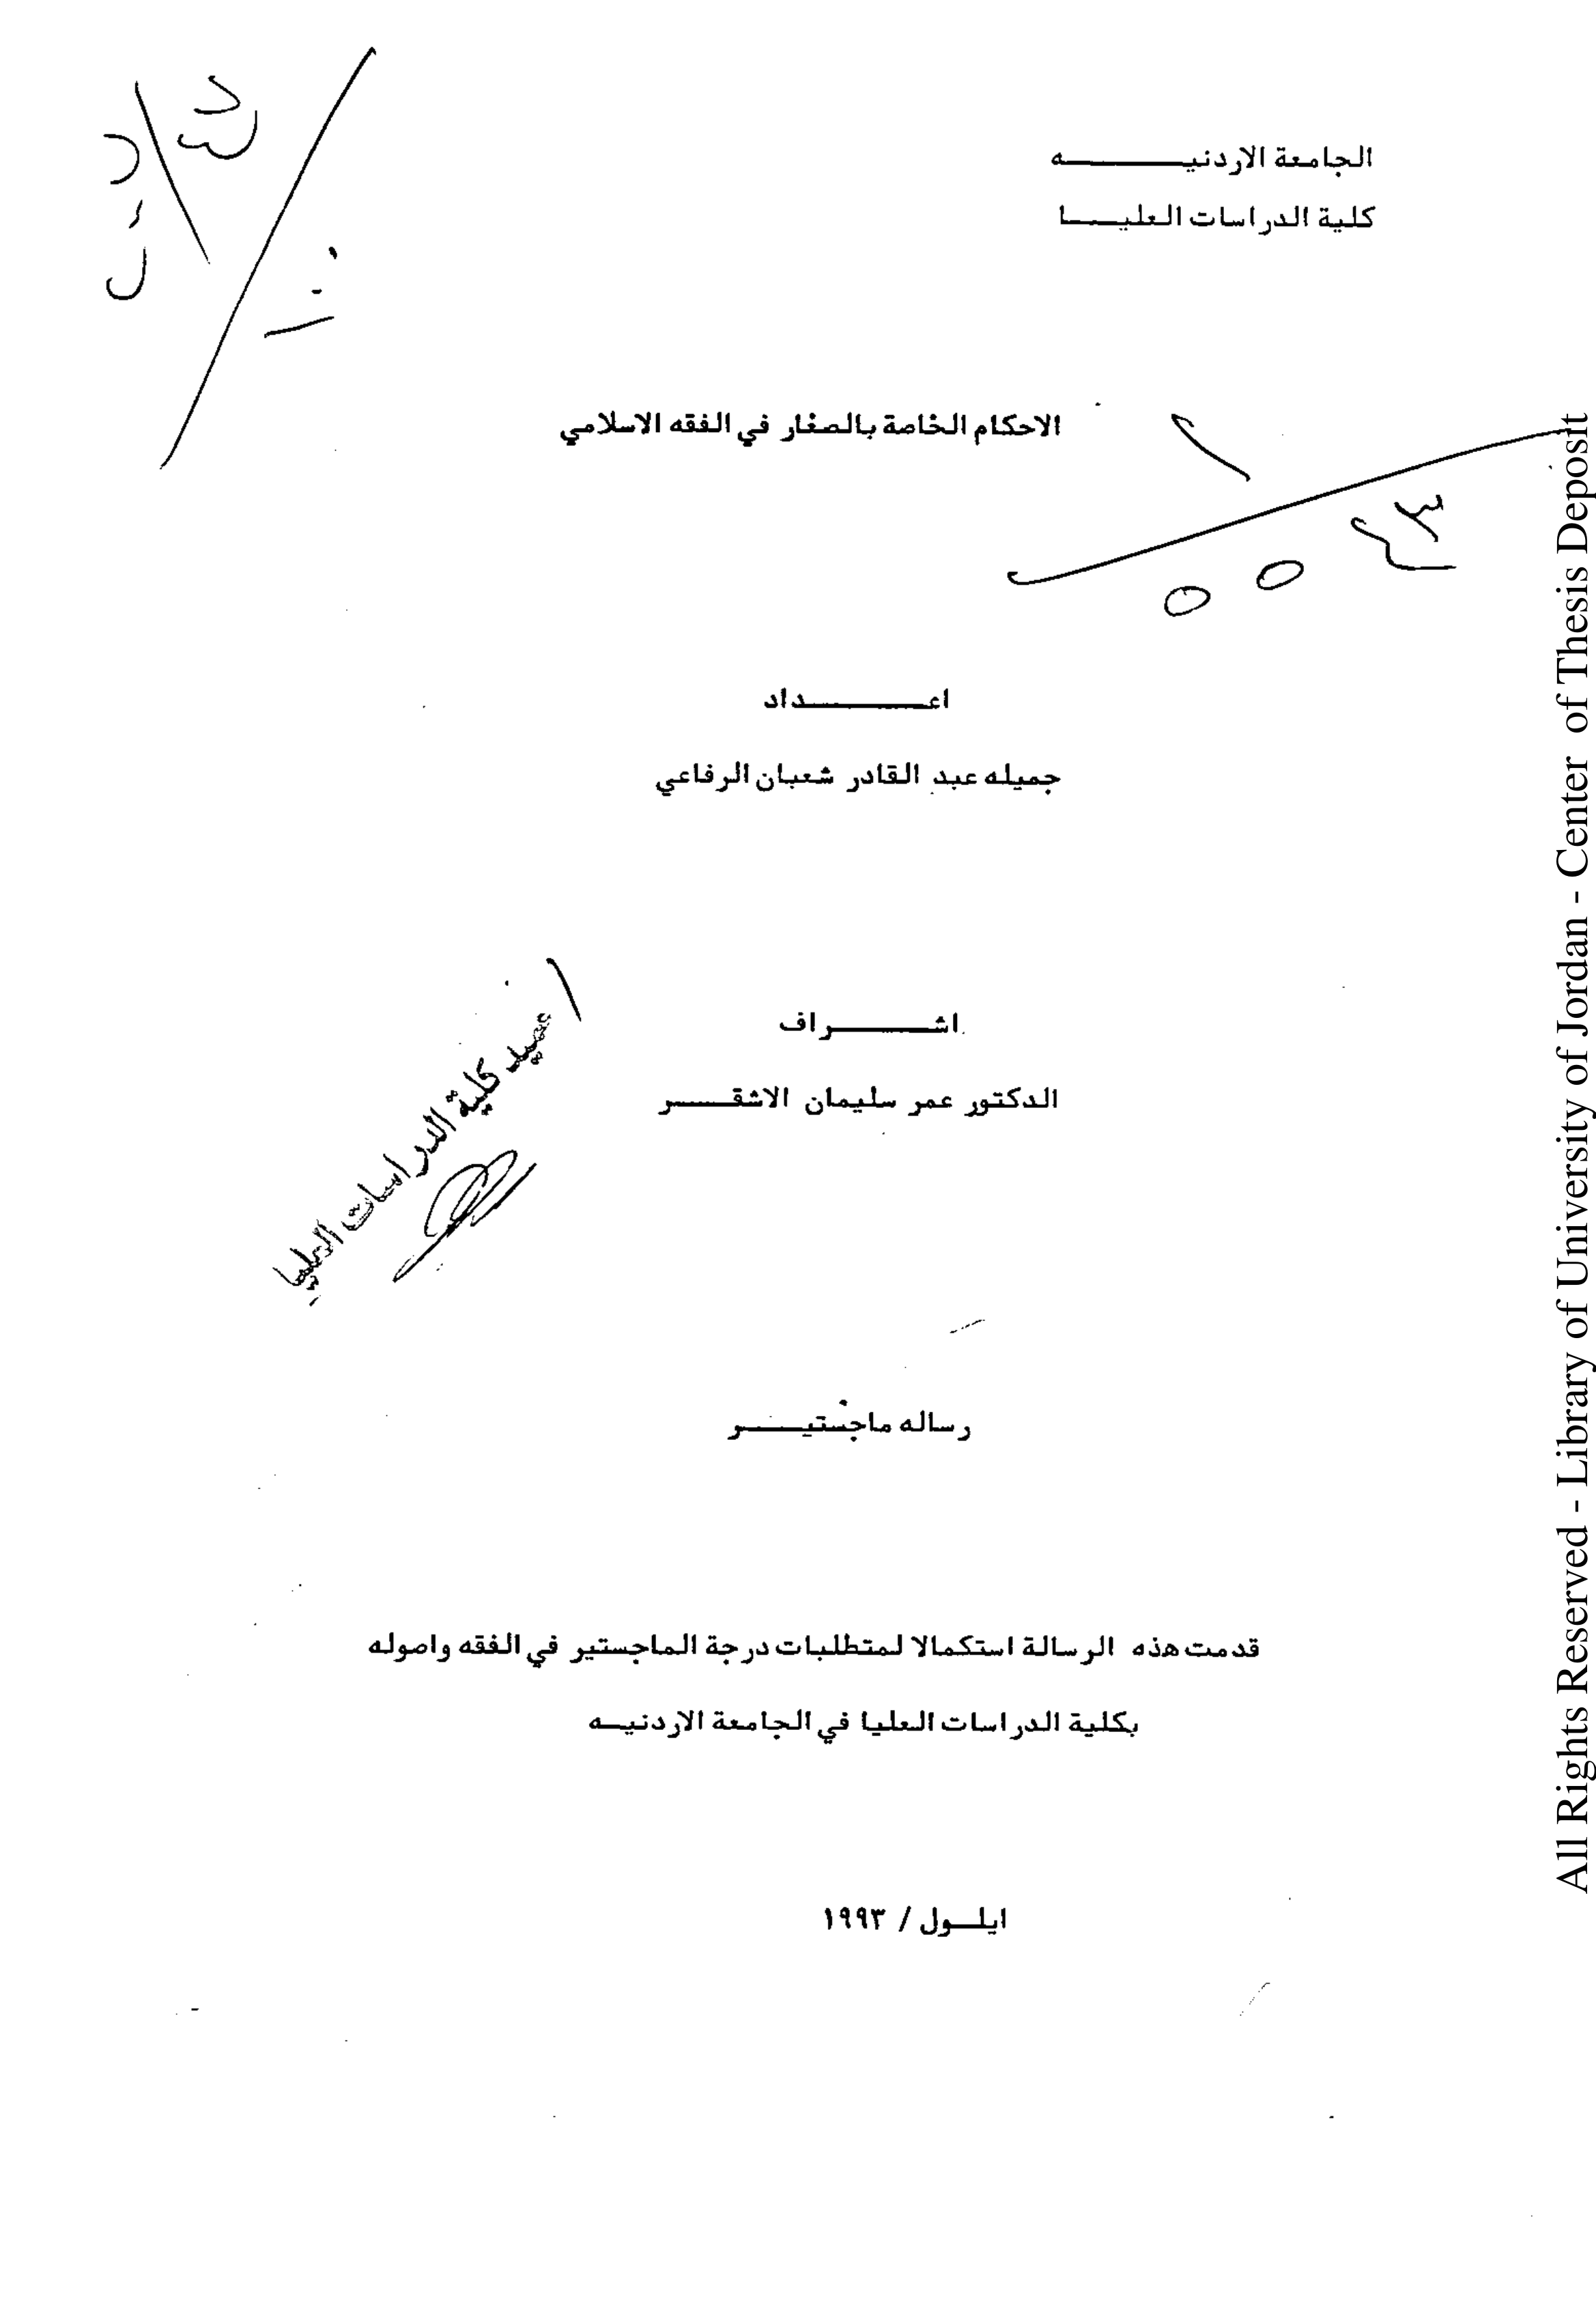 الجامعة الاردنيـــــــــه
كلية الدراسات العليـــــا
الاحكام الخاصة بالصغار في الفقه الاسلامي
اعــــــــداد
جميله عبد القادر شعبان الرفاعي
عميد كلية الدراسات العليا
اشــــــــراف
الدكتور عمر سليمان الاشقـــــر
رساله ماجستيـــــر
قدمت هذه الرسالة استكمالا لمتطلبات درجة الماجستير في الفقه واصوله
بكلية الدراسات العليا في الجامعة الاردنيــه
ايلــول / ١٩٩٣
All Rights Reserved - Library of University of Jordan - Center of Thesis Deposit